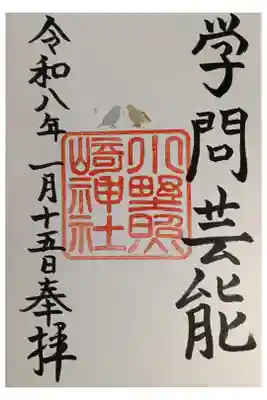 学問芸能
小野照
崎神社
令和八年 一月十五日 奉拝